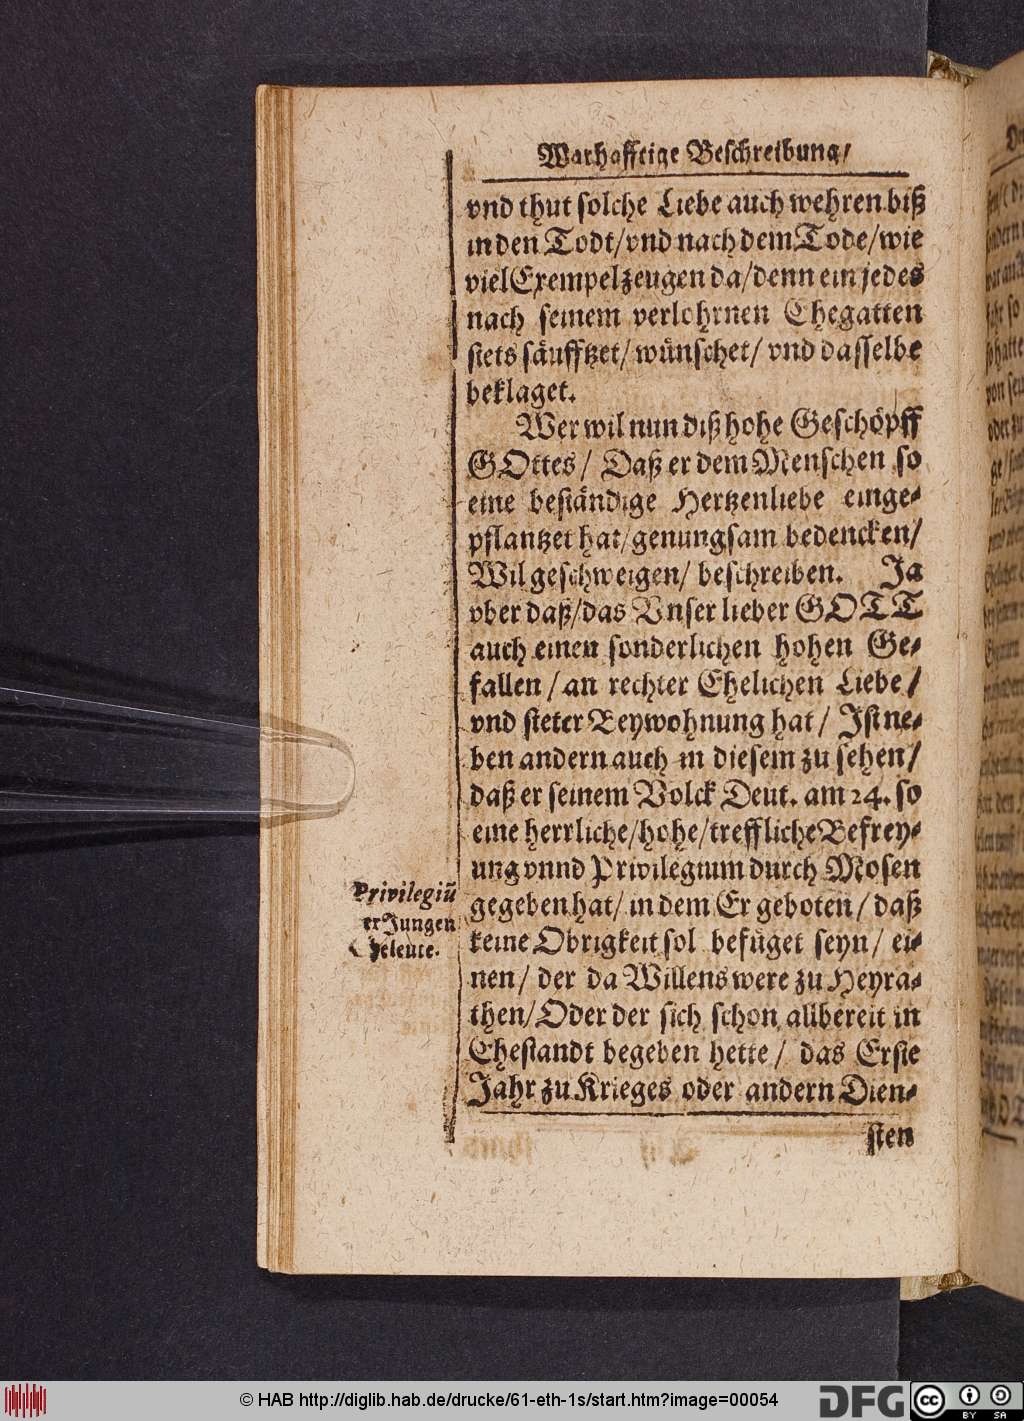 Warhafftige Beschreibung/
vnd thut solche Liebe auch wehren biß
in den Todt/vnd nach dem Tode/wie
viel Exempel zeugen da/denn ein jedes
nach seinem verlohrnen Ehegatten
stets säufftzet/wünschet/vnd dasselbe
beklaget.
Wer wil nun diß hohe Geschöpff
GOttes/ Daß er dem Menschen so
eine beständige Hertzenliebe einge-
pflantzet hat/genungsam bedencken/
Wil geschweigen/ beschreiben. Ja
vber daß/das Vnser lieber GOTT
auch einen sonderlichen hohen Ge-
fallen/an rechter Ehelichen Liebe/
vnd steter Beywohnung hat/ Ist ne-
ben andern auch in diesem zu sehen/
daß er seinem Volck Deut. am 24. so
eine herrliche/hohe/treffliche Befrey-
ung vnnd Privilegium durch Mosen
gegeben hat/in dem Er geboten/daß
keine Obrigkeit sol befüget seyn/ ei-
nen/ der da Willens were zu Heyra-
then/Oder der sich schon allbereit in
Ehestandt begeben hette/ das Erste
Jahr zu Krieges oder andern Dien-
sten
Privilegiũ
er Jungen
Eheleute.
© HAB http://diglib.hab.de/drucke/61-eth-1s/start.htm?image=00054
DFG
cc BY SA